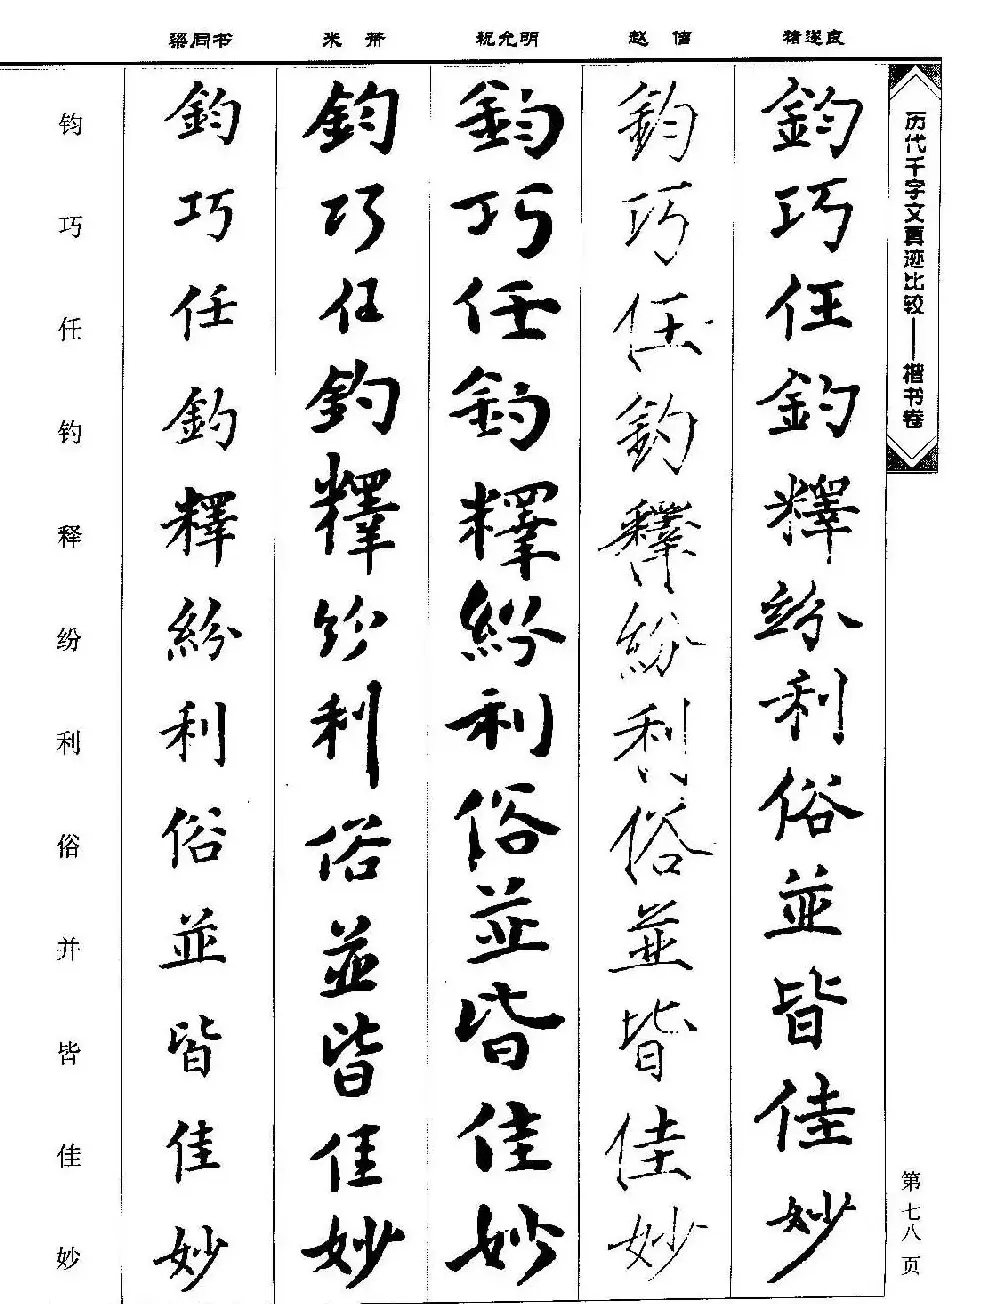 历代千字文真迹比较——楷书卷
第七八页
褚遂良
鈞巧任釣釋紛利俗並皆佳妙
赵佶
鈞巧任釣釋紛利俗並皆佳妙
祝允明
鈞巧任釣釋紛利俗並皆佳妙
米芾
鈞巧任釣釋紛利俗並皆佳妙
梁同书
鈞巧任釣釋紛利俗並皆佳妙
钧巧任钓释纷利俗并皆佳妙